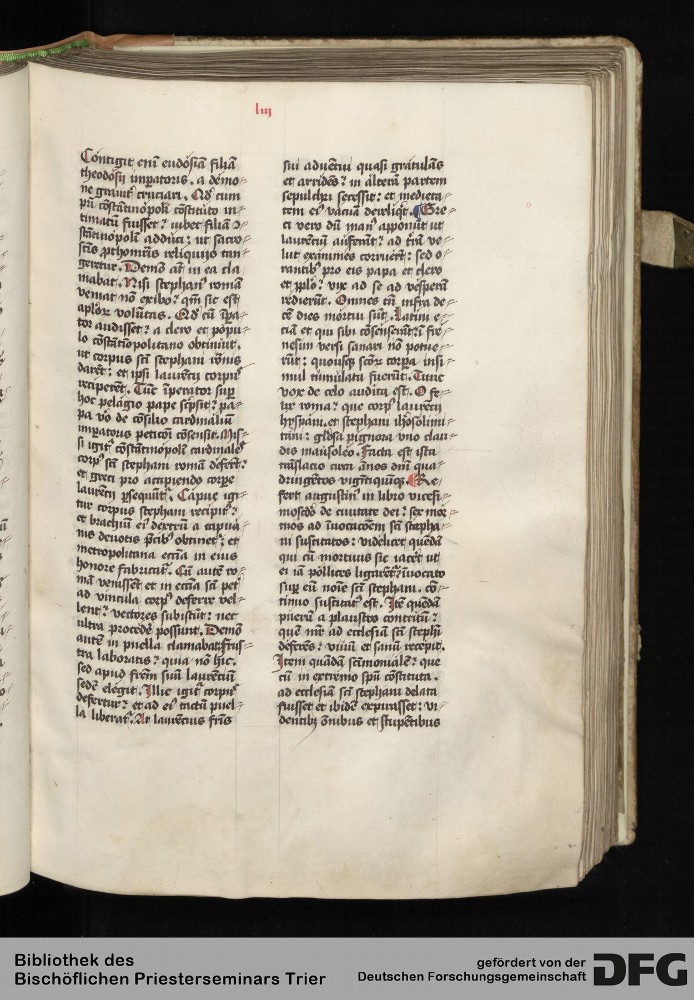 liii
Contigit eni͞ eudosia͞ filia͞
theodosij imp̲atoris . a demo⸗
ne grauit͛ cruciari . Qd͛ cum
pr̄i co͞sta͞tinopoli co͞stituto in⸗
timatu͞ fuisset⁊ iubet filia͞
sta͞tinopoli͞ adduci⁊ ut sacro
sc̄is prothom̄ris reliquijs tan
geretur . Demo͞ aut͛ in ea cla
mabat . Nisi stephan⁹ roma͞
veniat no͞ exibo⁊ qm̄ sic est
apl̄or̄ volu͞tas . Qd͛ cu͞ i͞pa⸗
tor audisset⁊ a clero et popu⸗
lo co͞sta͞tinopolitano obtinuit .
ut corpus sc̄i stephani ro͞nis
dare͞t⁊ et ipsi laurencij corpus
recipere͞t . Tu͞c i͞perator sup̲
hoc pelagio pape sc͛psit⁊ pa⸗
pa v͛o de co͞silio cardinaliu͞
imp̲atoris peticoi͞ co͞sensit . Mis⸗
si igit͛ co͞sta͞tinopoli͞ cardinales
corp⁹ sc̄i stephani roma͞ defere͞t⁊
et greci pro accipiendo corpe
laurencij p̲sequu͞t͛ . Capue igi⸗
tur corpus stephani recipit͛⁊
et brachiu͞ ei⁹ dextru͞ a capua⸗
nis deuotis p͛cib⁹ obtinet͛⁊ et
metropolitana ecc̄ia in eius
honore fabricat͛ . Cu͞ aute͞ ro⸗
ma͞ venisset et in ecc̄ia sc̄i pet͛
ad vincula corp⁹ deferre vel⸗
lent⁊ vectores subistu͞t⁊ nec
ultra procede͛ possunt . Demo͞
aute͞ in puella clamabat . frus⸗
tra laboratis⁊ quia no͞ hic .
sed apud fr̄em suu͞ laurenciu͞
sede͞ elegit . Illic igit͛ corpus
defertur⁊ et ad ei⁹ tactu͞ puel⸗
la liberat͛ . At laurencius fr̄is
sui aduentui quasi gratula͞s
et arride͞s⁊ in altera͞ partem
sepulchri secessit⁊ et medieta⸗
tem ei⁹ vacua͞ dereliq͛t . Gre⸗
ci vero du͞ man⁹ apponu͞t ut
laurenciu͞ aufera͞t⁊ ad t͛ra͞ ve⸗
lut exanimes corruer͞t⁊ sed o⸗
rantib⁹ pro eis papa et clero
et pp̄lo⁊ vix ad se ad vesp̲am
redieru͞t . Omnes tn̄ infra de⸗
ce͞ dies mortui su͞t . Latini e⸗
cia͞ et qui sibi co͞senseru͞t⁊ i͞ fre⸗
nesim versi sanari no͞ potue⸗
ru͞t⁊ quousq͛ sc̄or̄ corp̲a insi⸗
mul tumulata fueru͞t . Tunc
vox de celo audita est . O fe⸗
lix roma⁊ que corp⁹ laurencij
hyspani . et stephani ih͞osolimi⸗
tani⁊ gl͞osa pignora uno clau⸗
dis mausoleo . Facta est ista
t͛nslacio circa a͞nos dn̄i qua⸗
dringe͞tos viginti quinq͛ . Re⸗
fert augustin⁹ in libro vicesi⸗
mosc̄do de ciuitate dei⁊ sex mor⸗
tuos ad i͞uocacoe͞m sc̄i stepha⸗
ni suscitatos⁊ videlicet quenda͞
qui cu͞ mortuus sic iacer͛t ut
ei ia͞ pollices ligarent͛⁊ i͞uocato
sup̲ eu͞ noi͞e sc̄i stephani . co͞⸗
tinuo suscitat⁹ est . Ite͞ queda͞
pueru͞ a plaustro contritu͞⁊
que͞ mr̄ ad ecclesia͞ sc̄i steph̄i
defere͞s⁊ viuu͞ et sanu͞ recepit .
Item queda͞ sc̄imonialis⁊ que
cu͞ in extremo spu͞ co͞stituta .
ad ecclesia͞ sc̄i stephani delata
fuisset et ibide͞ expirasset⁊ vi⸗
dentibȝ o͞nibus et stupe͞tibus
Bibliothek des
Bischöflichen Priesterseminars Trier
gefördert von der
Deutschen Forschungsgemeinschaft
DFG